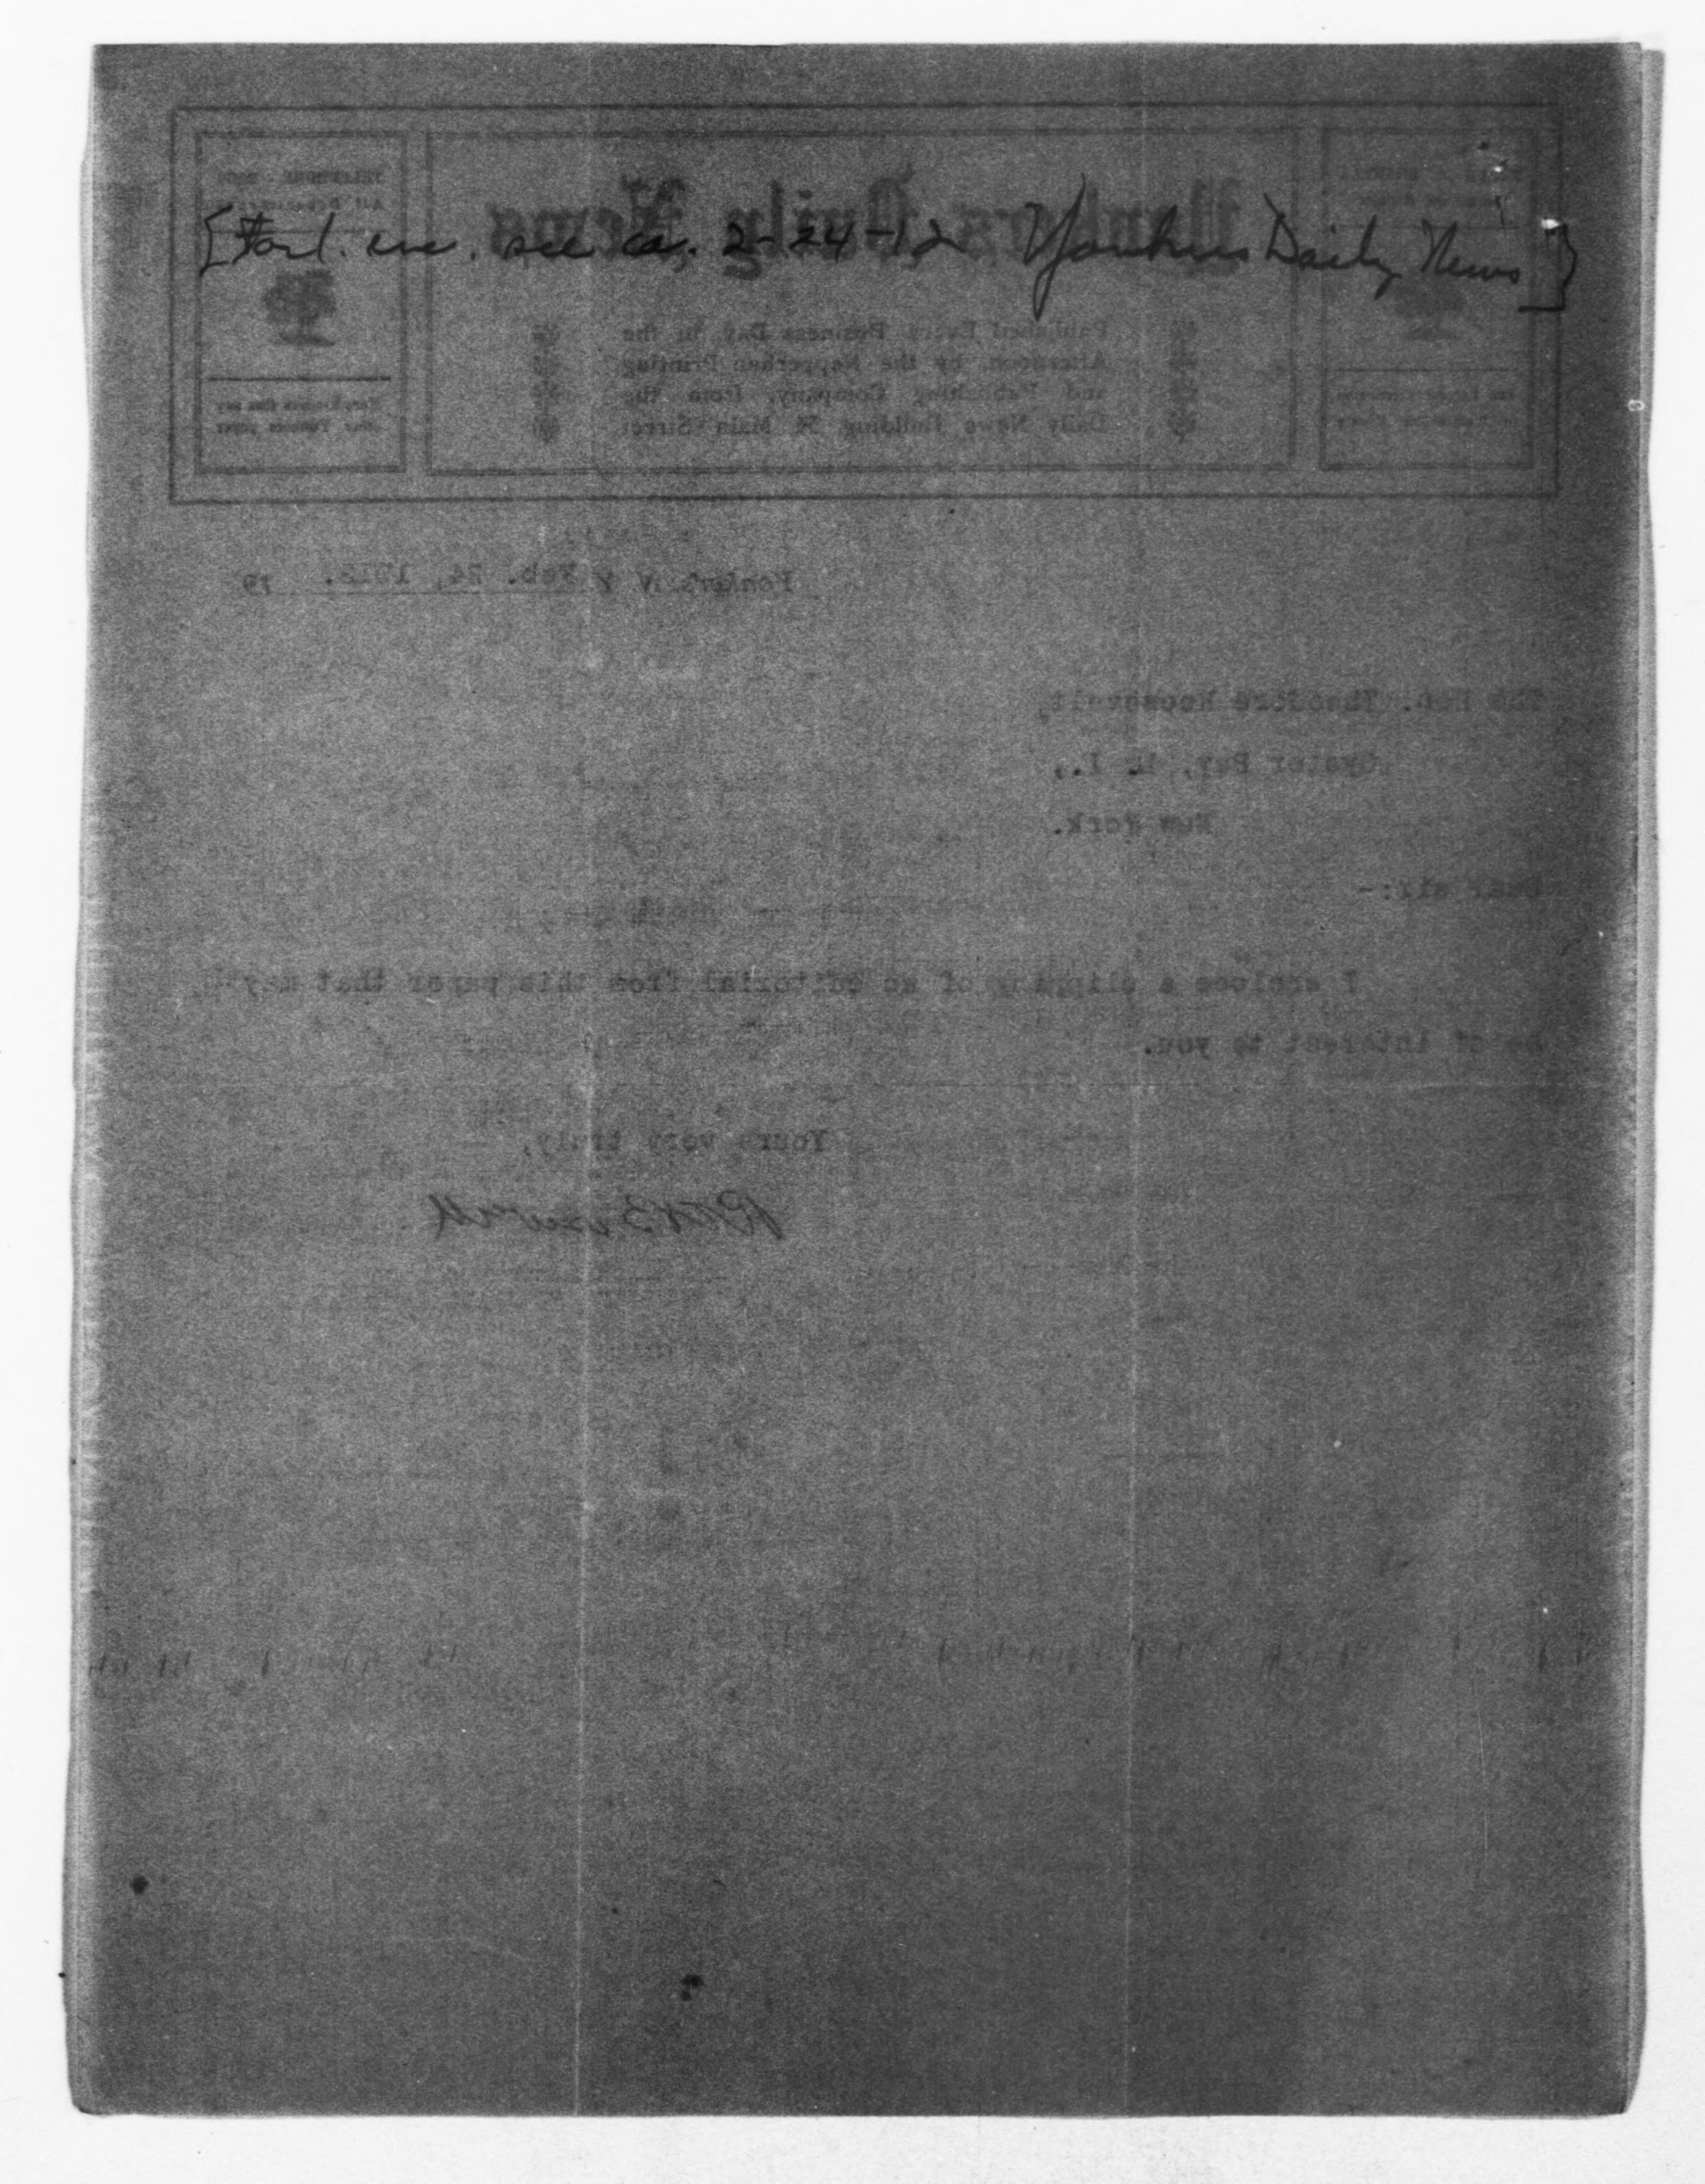 [For 1. enc. see ca. 2-24-12 Yonkers Daily News]
TELEPHONE
All Departments
Yonkers Daily News
Published Every Business Day in the
Afternoon, by the Nepperhan Printing
and Publishing Company, from the
Daily News Building 54 Main Street
Yonkers, N Y Feb. 24, 1912. 19
The Hon. Theodore Roosevelt,
Oyster Bay, L. I.,
New York.
Dear sir:-
I enclose a clipping of an editorial from this paper that may
be of interest to you.
Yours very truly,